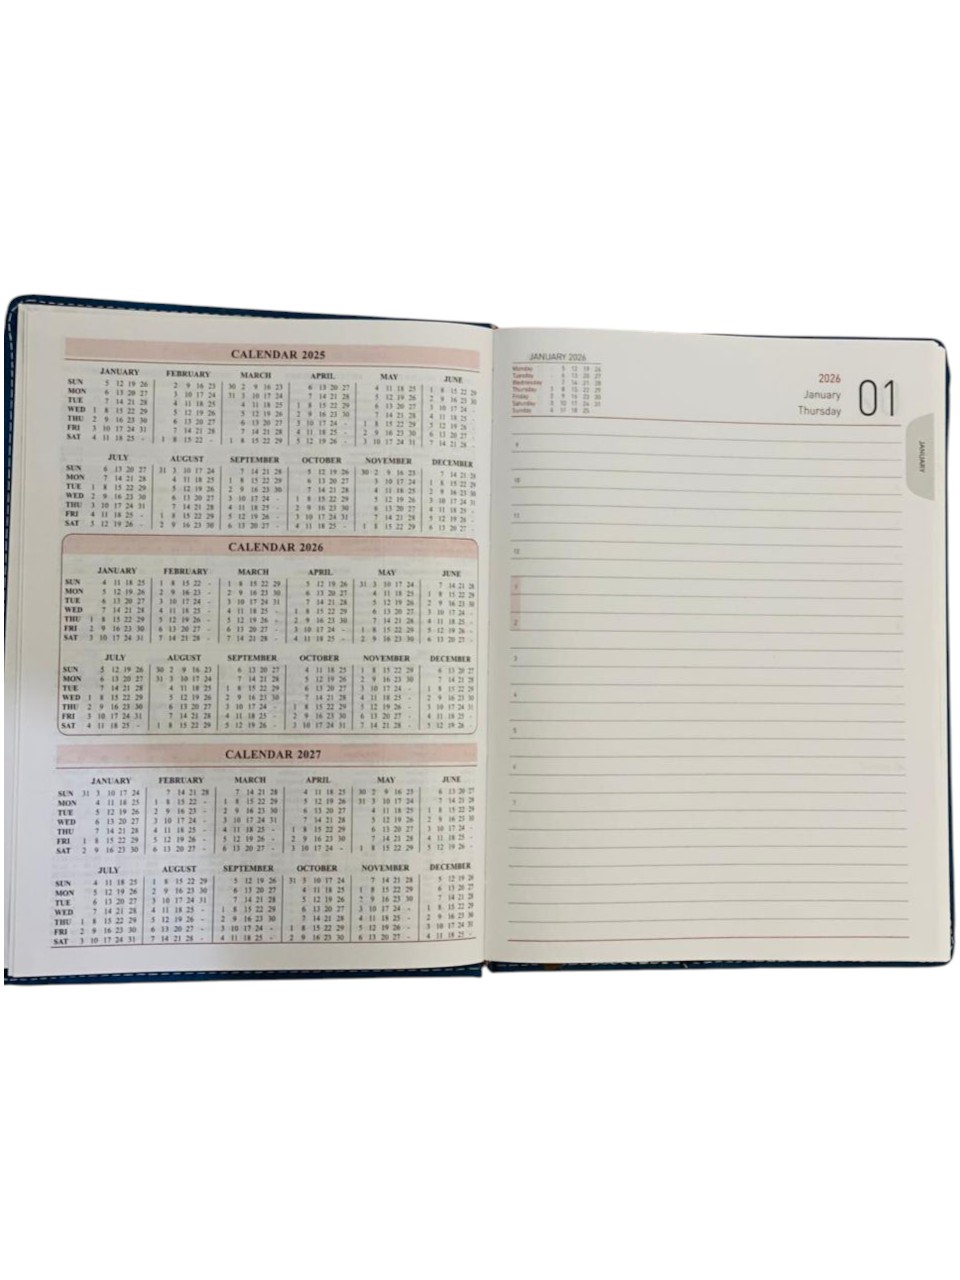 CALENDAR 2025
JANUARY FEBRUARY MARCH APRIL MAY JUNE
SUN 5 12 19 26 2 9 16 23 30 2 9 16 23 6 13 20 27 4 11 18 25 1 8 15 22 29
MON 6 13 20 27 3 10 17 24 31 3 10 17 24 7 14 21 28 5 12 19 26 2 9 16 23 30
TUE 7 14 21 28 4 11 18 25 4 11 18 25 1 8 15 22 29 6 13 20 27 3 10 17 24 -
WED 1 8 15 22 29 5 12 19 26 5 12 19 26 2 9 16 23 30 7 14 21 28 4 11 18 25 -
THU 2 9 16 23 30 6 13 20 27 6 13 20 27 3 10 17 24 - 1 8 15 22 29 5 12 19 26 -
FRI 3 10 17 24 31 7 14 21 28 7 14 21 28 4 11 18 25 - 2 9 16 23 30 6 13 20 27 -
SAT 4 11 18 25 - 1 8 15 22 - 1 8 15 22 29 5 12 19 26 - 3 10 17 24 31 7 14 21 28 -
JULY AUGUST SEPTEMBER OCTOBER NOVEMBER DECEMBER
SUN 6 13 20 27 31 3 10 17 24 7 14 21 28 5 12 19 26 30 2 9 16 23 7 14 21 28
MON 7 14 21 28 4 11 18 25 1 8 15 22 29 6 13 20 27 3 10 17 24 1 8 15 22 29
TUE 1 8 15 22 29 5 12 19 26 2 9 16 23 30 7 14 21 28 4 11 18 25 2 9 16 23 30
WED 2 9 16 23 30 6 13 20 27 3 10 17 24 - 1 8 15 22 29 5 12 19 26 3 10 17 24 31
THU 3 10 17 24 31 7 14 21 28 4 11 18 25 - 2 9 16 23 30 6 13 20 27 4 11 18 25 -
FRI 4 11 18 25 - 1 8 15 22 29 5 12 19 26 - 3 10 17 24 31 7 14 21 28 5 12 19 26 -
SAT 5 12 19 26 - 2 9 16 23 30 6 13 20 27 - 4 11 18 25 - 1 8 15 22 29 6 13 20 27 -
CALENDAR 2026
JANUARY FEBRUARY MARCH APRIL MAY JUNE
SUN 4 11 18 25 1 8 15 22 - 1 8 15 22 29 5 12 19 26 31 3 10 17 24 7 14 21 28
MON 5 12 19 26 2 9 16 23 - 2 9 16 23 30 6 13 20 27 4 11 18 25 1 8 15 22 29
TUE 6 13 20 27 3 10 17 24 - 3 10 17 24 31 7 14 21 28 5 12 19 26 2 9 16 23 30
WED 7 14 21 28 4 11 18 25 - 4 11 18 25 - 1 8 15 22 29 6 13 20 27 3 10 17 24 -
THU 1 8 15 22 29 5 12 19 26 - 5 12 19 26 - 2 9 16 23 30 7 14 21 28 4 11 18 25 -
FRI 2 9 16 23 30 6 13 20 27 - 6 13 20 27 - 3 10 17 24 - 1 8 15 22 29 5 12 19 26 -
SAT 3 10 17 24 31 7 14 21 28 - 7 14 21 28 - 4 11 18 25 - 2 9 16 23 30 6 13 20 27 -
JULY AUGUST SEPTEMBER OCTOBER NOVEMBER DECEMBER
SUN 5 12 19 26 30 2 9 16 23 6 13 20 27 4 11 18 25 1 8 15 22 29 6 13 20 27
MON 6 13 20 27 31 3 10 17 24 7 14 21 28 5 12 19 26 2 9 16 23 30 7 14 21 28
TUE 7 14 21 28 4 11 18 25 1 8 15 22 29 6 13 20 27 3 10 17 24 - 1 8 15 22 29
WED 1 8 15 22 29 5 12 19 26 2 9 16 23 30 7 14 21 28 4 11 18 25 - 2 9 16 23 30
THU 2 9 16 23 30 6 13 20 27 3 10 17 24 - 1 8 15 22 29 5 12 19 26 - 3 10 17 24 31
FRI 3 10 17 24 31 7 14 21 28 4 11 18 25 - 2 9 16 23 30 6 13 20 27 - 4 11 18 25 -
SAT 4 11 18 25 - 1 8 15 22 29 5 12 19 26 - 3 10 17 24 31 7 14 21 28 - 5 12 19 26 -
CALENDAR 2027
JANUARY FEBRUARY MARCH APRIL MAY JUNE
SUN 31 3 10 17 24 7 14 21 28 7 14 21 28 4 11 18 25 30 2 9 16 23 6 13 20 27
MON 4 11 18 25 1 8 15 22 - 1 8 15 22 29 5 12 19 26 31 3 10 17 24 7 14 21 28
TUE 5 12 19 26 2 9 16 23 - 2 9 16 23 30 6 13 20 27 4 11 18 25 1 8 15 22 29
WED 6 13 20 27 3 10 17 24 - 3 10 17 24 31 7 14 21 28 5 12 19 26 2 9 16 23 30
THU 7 14 21 28 4 11 18 25 - 4 11 18 25 - 1 8 15 22 29 6 13 20 27 3 10 17 24 -
FRI 1 8 15 22 29 5 12 19 26 - 5 12 19 26 - 2 9 16 23 30 7 14 21 28 4 11 18 25 -
SAT 2 9 16 23 30 6 13 20 27 - 6 13 20 27 - 3 10 17 24 - 1 8 15 22 29 5 12 19 26 -
JULY AUGUST SEPTEMBER OCTOBER NOVEMBER DECEMBER
SUN 4 11 18 25 1 8 15 22 29 5 12 19 26 31 3 10 17 24 7 14 21 28 5 12 19 26
MON 5 12 19 26 2 9 16 23 30 6 13 20 27 4 11 18 25 1 8 15 22 29 6 13 20 27
TUE 6 13 20 27 3 10 17 24 31 7 14 21 28 5 12 19 26 2 9 16 23 30 7 14 21 28
WED 7 14 21 28 4 11 18 25 - 1 8 15 22 29 6 13 20 27 3 10 17 24 - 1 8 15 22 29
THU 1 8 15 22 29 5 12 19 26 - 2 9 16 23 30 7 14 21 28 4 11 18 25 - 2 9 16 23 30
FRI 2 9 16 23 30 6 13 20 27 - 3 10 17 24 - 1 8 15 22 29 5 12 19 26 - 3 10 17 24 31
SAT 3 10 17 24 31 7 14 21 28 - 4 11 18 25 - 2 9 16 23 30 6 13 20 27 - 4 11 18 25 -
JANUARY 2026
Monday 5 12 19 26
Tuesday 6 13 20 27
Wednesday 7 14 21 28
Thursday 1 8 15 22 29
Friday 2 9 16 23 30
Saturday 3 10 17 24 31
Sunday 4 11 18 25
2026
January
Thursday
01
JANUARY
9
10
11
12
1
2
3
4
5
6
7